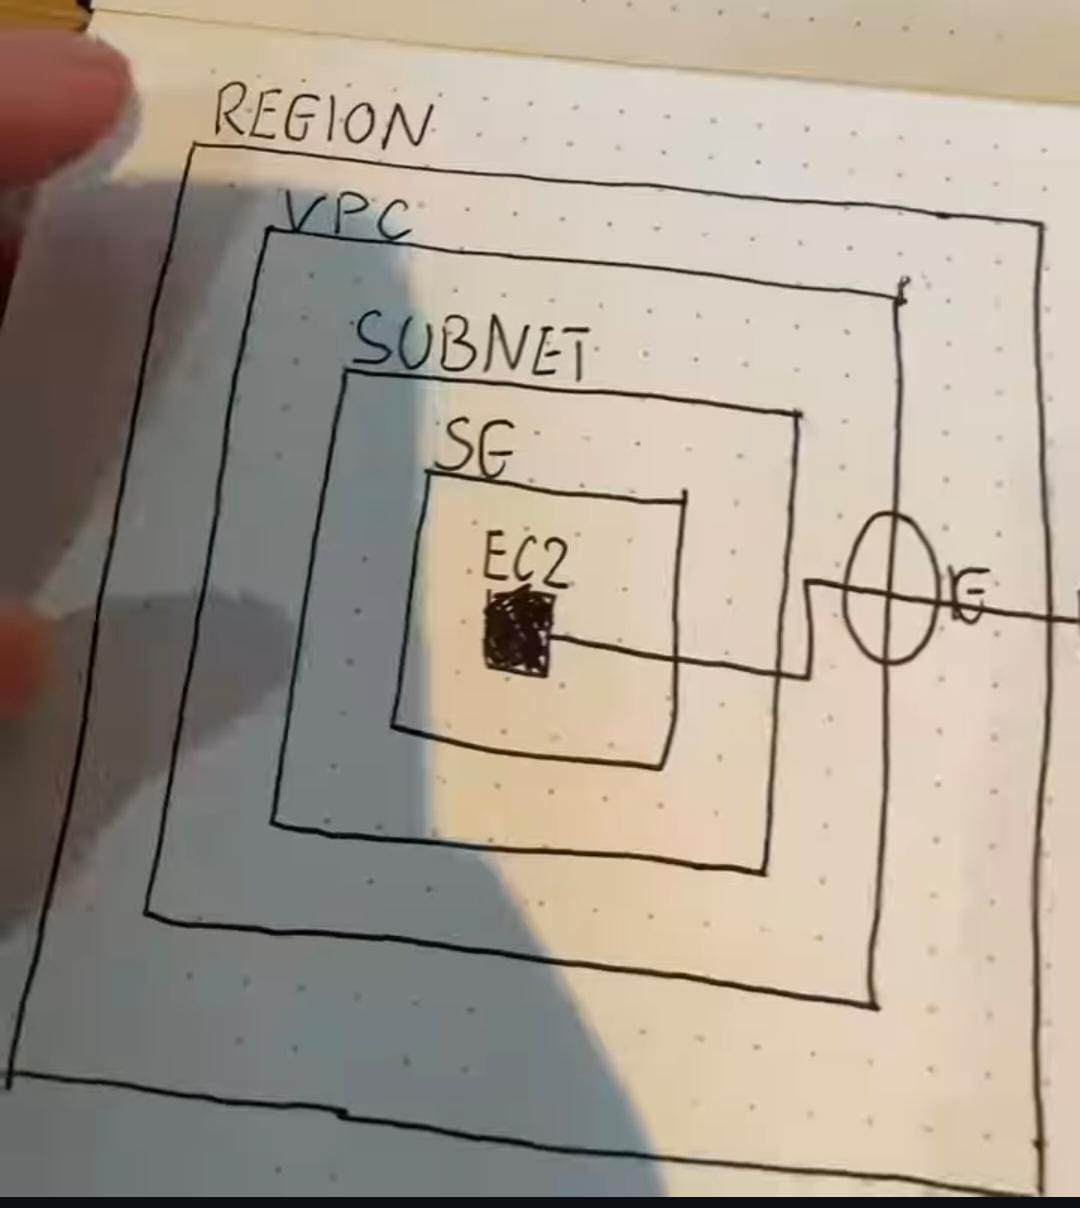 REGION
VPC
SUBNET
SG
EC2
IG